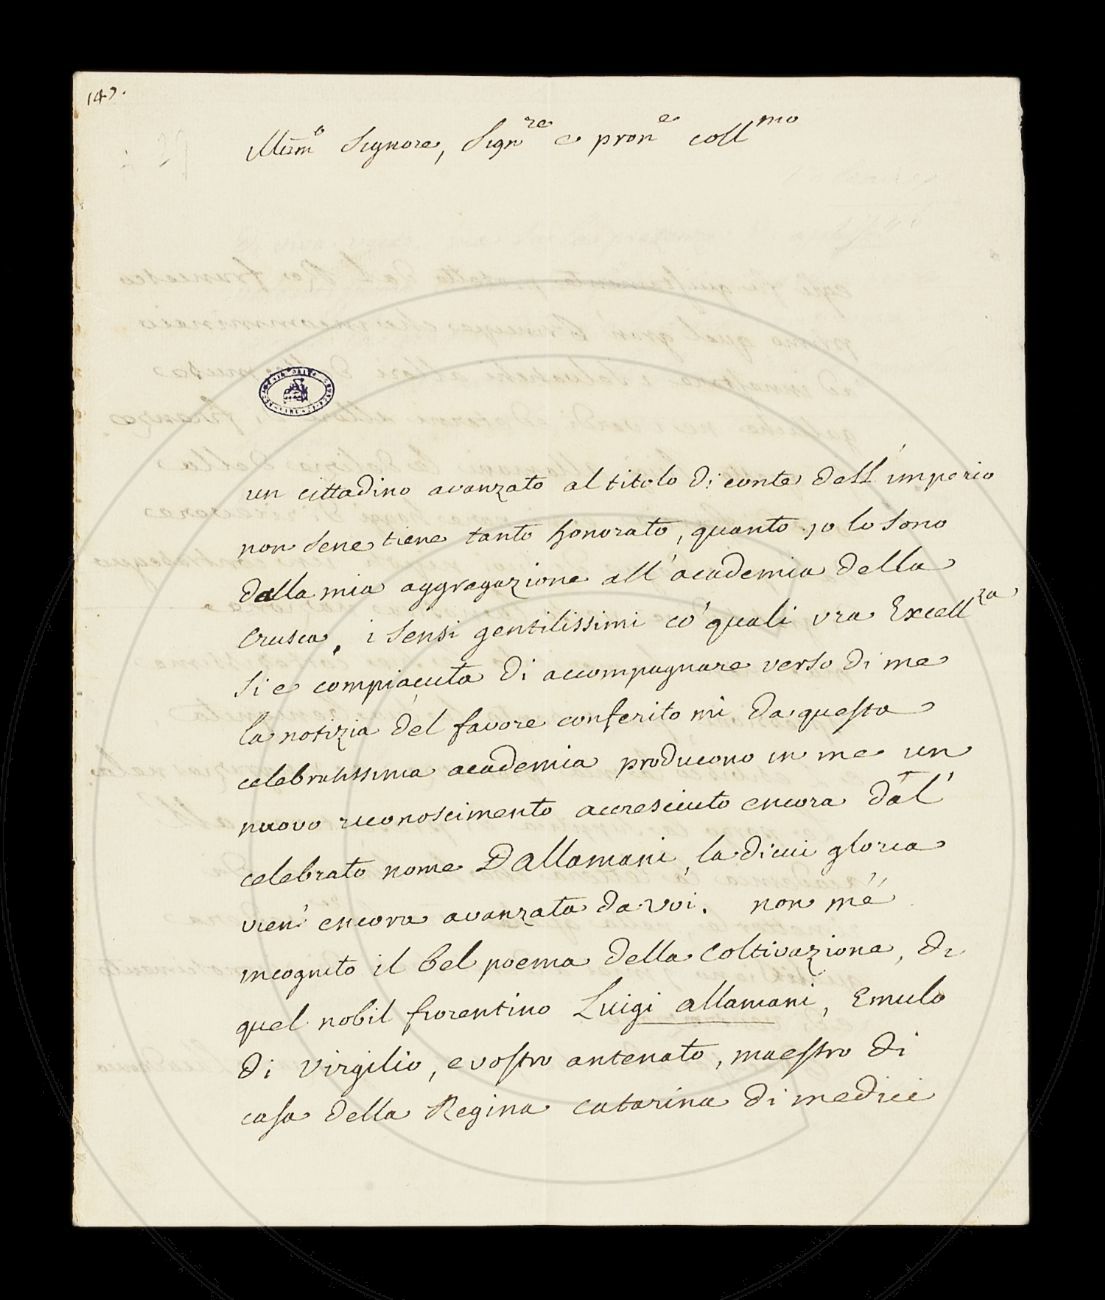 149.
Illum° Signore, Sign^re e pron^e coll^mo
un cittadino avanzato al titolo di conte dell' imperio
non sene tiene tanto honorato, quanto jo lo sono
dalla mia aggregazione all' academia della
Crusca, i sensi gentilissimi co' quali vra Excell^za
si e compiaciuta di accompagnare verso di me
la notizia del favore conferito mi da questa
celebratissima academia producono in me un
nuovo riconoscimento accresciuto encora dal'
celebrato nome D'Allamani, la di cui gloria
vien' encora avanzata da voi. non m'é
incognito il bel poema della Coltivazione, di
quel nobil fiorentino Luigi allamani, Emulo
di Virgilio, e vostro antenato, maestro di
casa della Regina catarina di medici